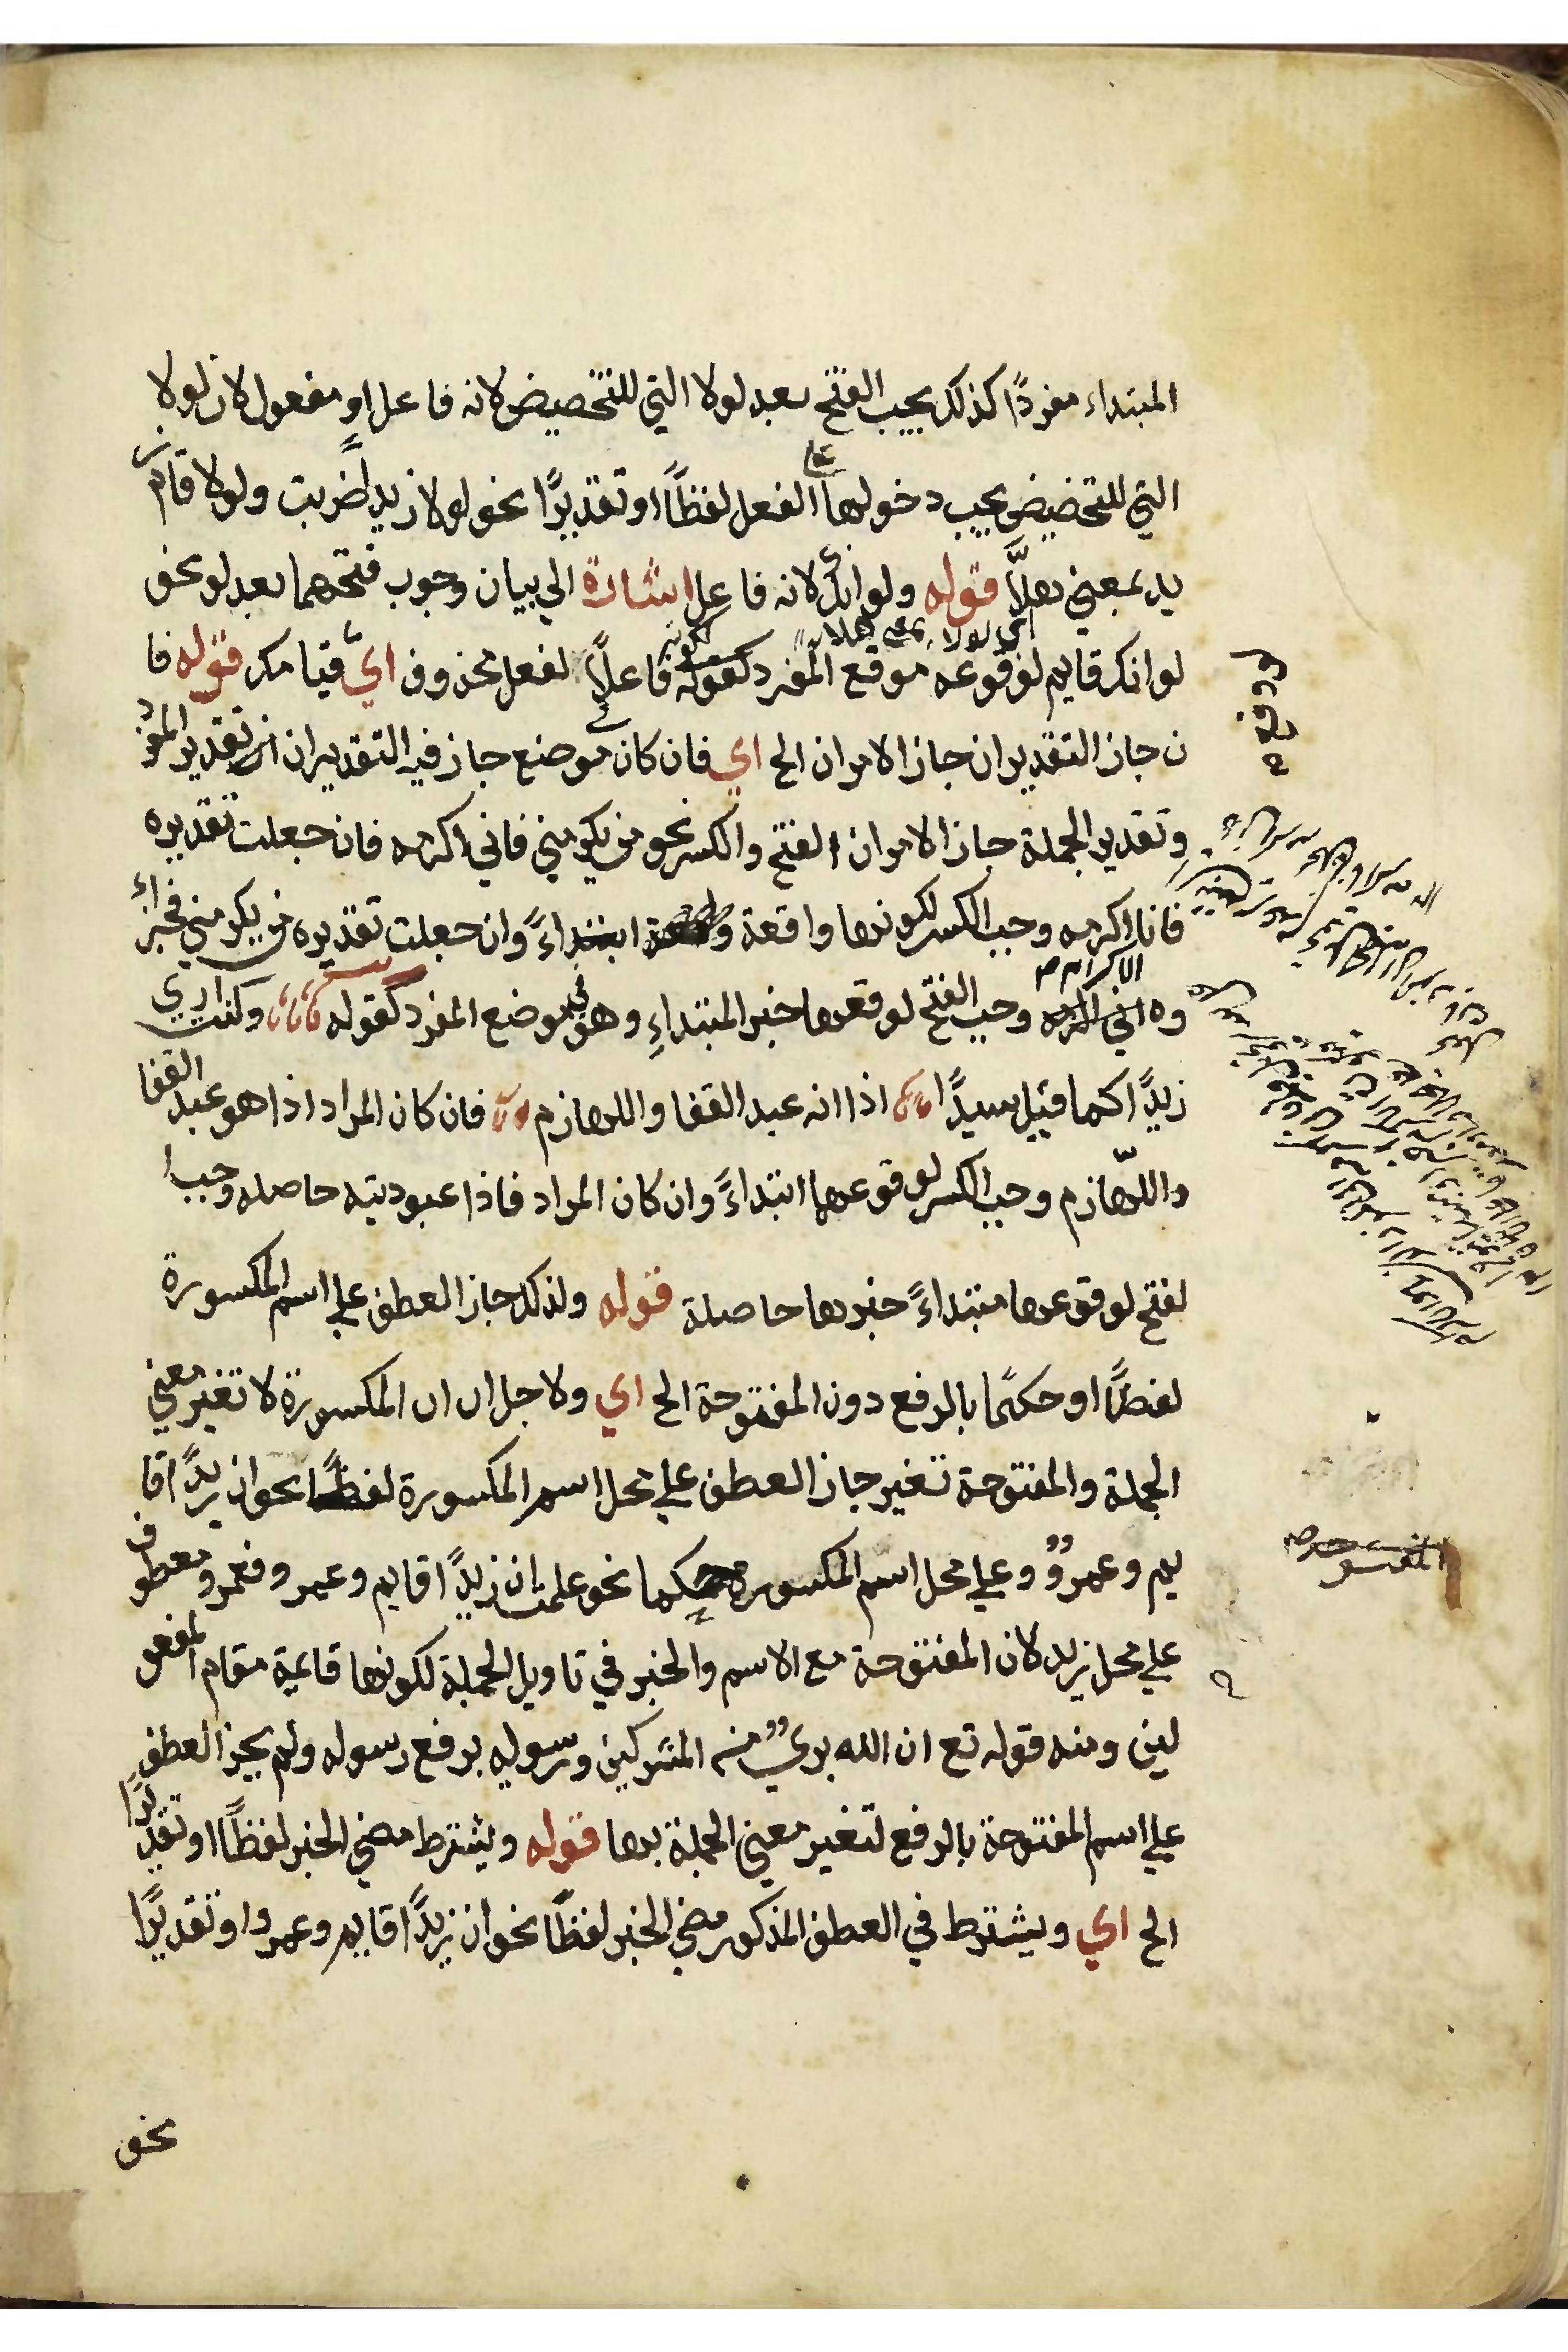 المبتداء مفردًا كذلك يجب الفتح بعد لولا التي للتخصيض لانه فاعل او مفعول لان لولا
التي للتخضيض يجب دخولها الفعل لفظًا او تقديرًا نحو لولا زيدًا ضربت ولولا قام ز
يد بمعني هلّا قوله ولو انك لانه فاعل اشارة الي بيان وجوب فتحهما بعد لو نحو
اي لولا بمعني هلا
لو انك قايم لوقوعه موقع المفرد لكونه فاعلًا لفعل محذوف اي قيامك قوله فا
ن جاز التقديران جاز الامران الخ اي فان كان موضع جاز فيه التقديران اي تقدير المفرد
وتقدير الجملة جاز الامران الفتح والكسر نحو من يكرمني فاني اكرمه فان جعلت تقديره
فانا اكرمه وجب الكسر لكونها واقعة ابتداءً وان جعلت تقديره من يكرمني فجزاء
وه الاكرام وجب الفتح لوقعها خبر المبتداءِ وهو في موضع المفرد كقوله وكنت اري
زيدًا كما قيل سيدًا اذا انه عبد القفا واللهازم فان كان المراد اذا هو عبد القفا
واللّهازم وجب الكسر لوقوعها ابتداءً وان كان المراد فاذا عبوديته حاصله وجب ا
لفتح لوقوعها مبتداءً خبرها حاصلة قوله ولذلك جاز العطف علي اسم المكسورة
لفظًا او حكمًا بالرفع دون المفتوحة الخ اي ولاجل ان ان المكسورة لا تغير معني
الجملة والمفتوحة تغير جاز العطف علي محل اسم المكسورة لفظًا نحو ان زيدًا قا
يم وعمروٌ وعلي محل اسم المكسورة حكما نحو علمت ان زيدًا قايم وعمرو فعمرو معطوف
علي محل زيد لان المفتوحة مع الاسم والخبر في تاويل الجملة لكونها قايمة مقام المفعو
لين ومنه قوله تع ان الله بريٌ من المشركين ورسوله برفع رسوله ولم يجز العطف
علي اسم المفتوحة بالرفع لتغير معني الجملة بها قوله ويشترط مضي الخبر لفظًا او تقديرًا
الخ اي ويشترط في العطف المذكور مضي الخبر لفظًا نحو ان زيدًا قايم وعمرو او تقديرًا
المفتوحة
نحو